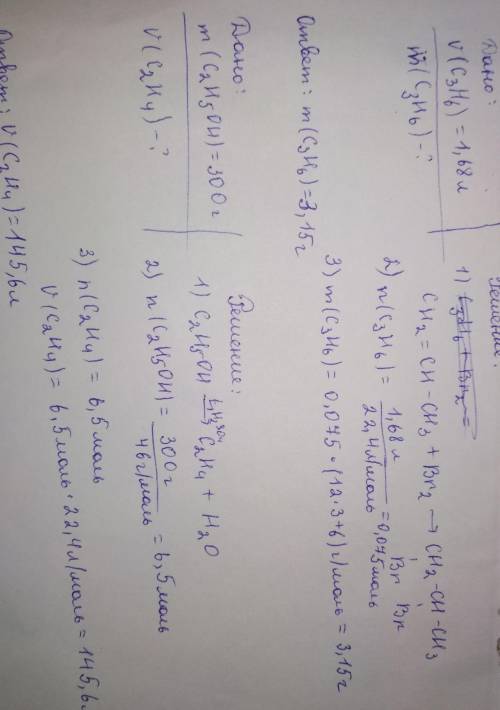 Дано:
V(C3H6) = 1,68 л
m(C3H6) - ?
Решение:
1)
CH2=CH-CH3 + Br2 → CH2-CH-CH3
Br Br
2) n(C3H6) = 1,68 л / 22,4 л/моль = 0,075 моль
3) m(C3H6) = 0,075 · (12·3+6) г/моль = 3,15 г
Ответ: m(C3H6) = 3,15 г
Дано:
m(C2H5OH) = 300 г
V(C2H4) - ?
Решение:
1) C2H5OH → C2H4 + H2O
2) n(C2H5OH) = 300 г / 46 г/моль = 6,5 моль
3) n(C2H4) = 6,5 моль
V(C2H4) = 6,5 моль · 22,4 л/моль = 145,6 л
Ответ: V(C2H4) = 145,6 л